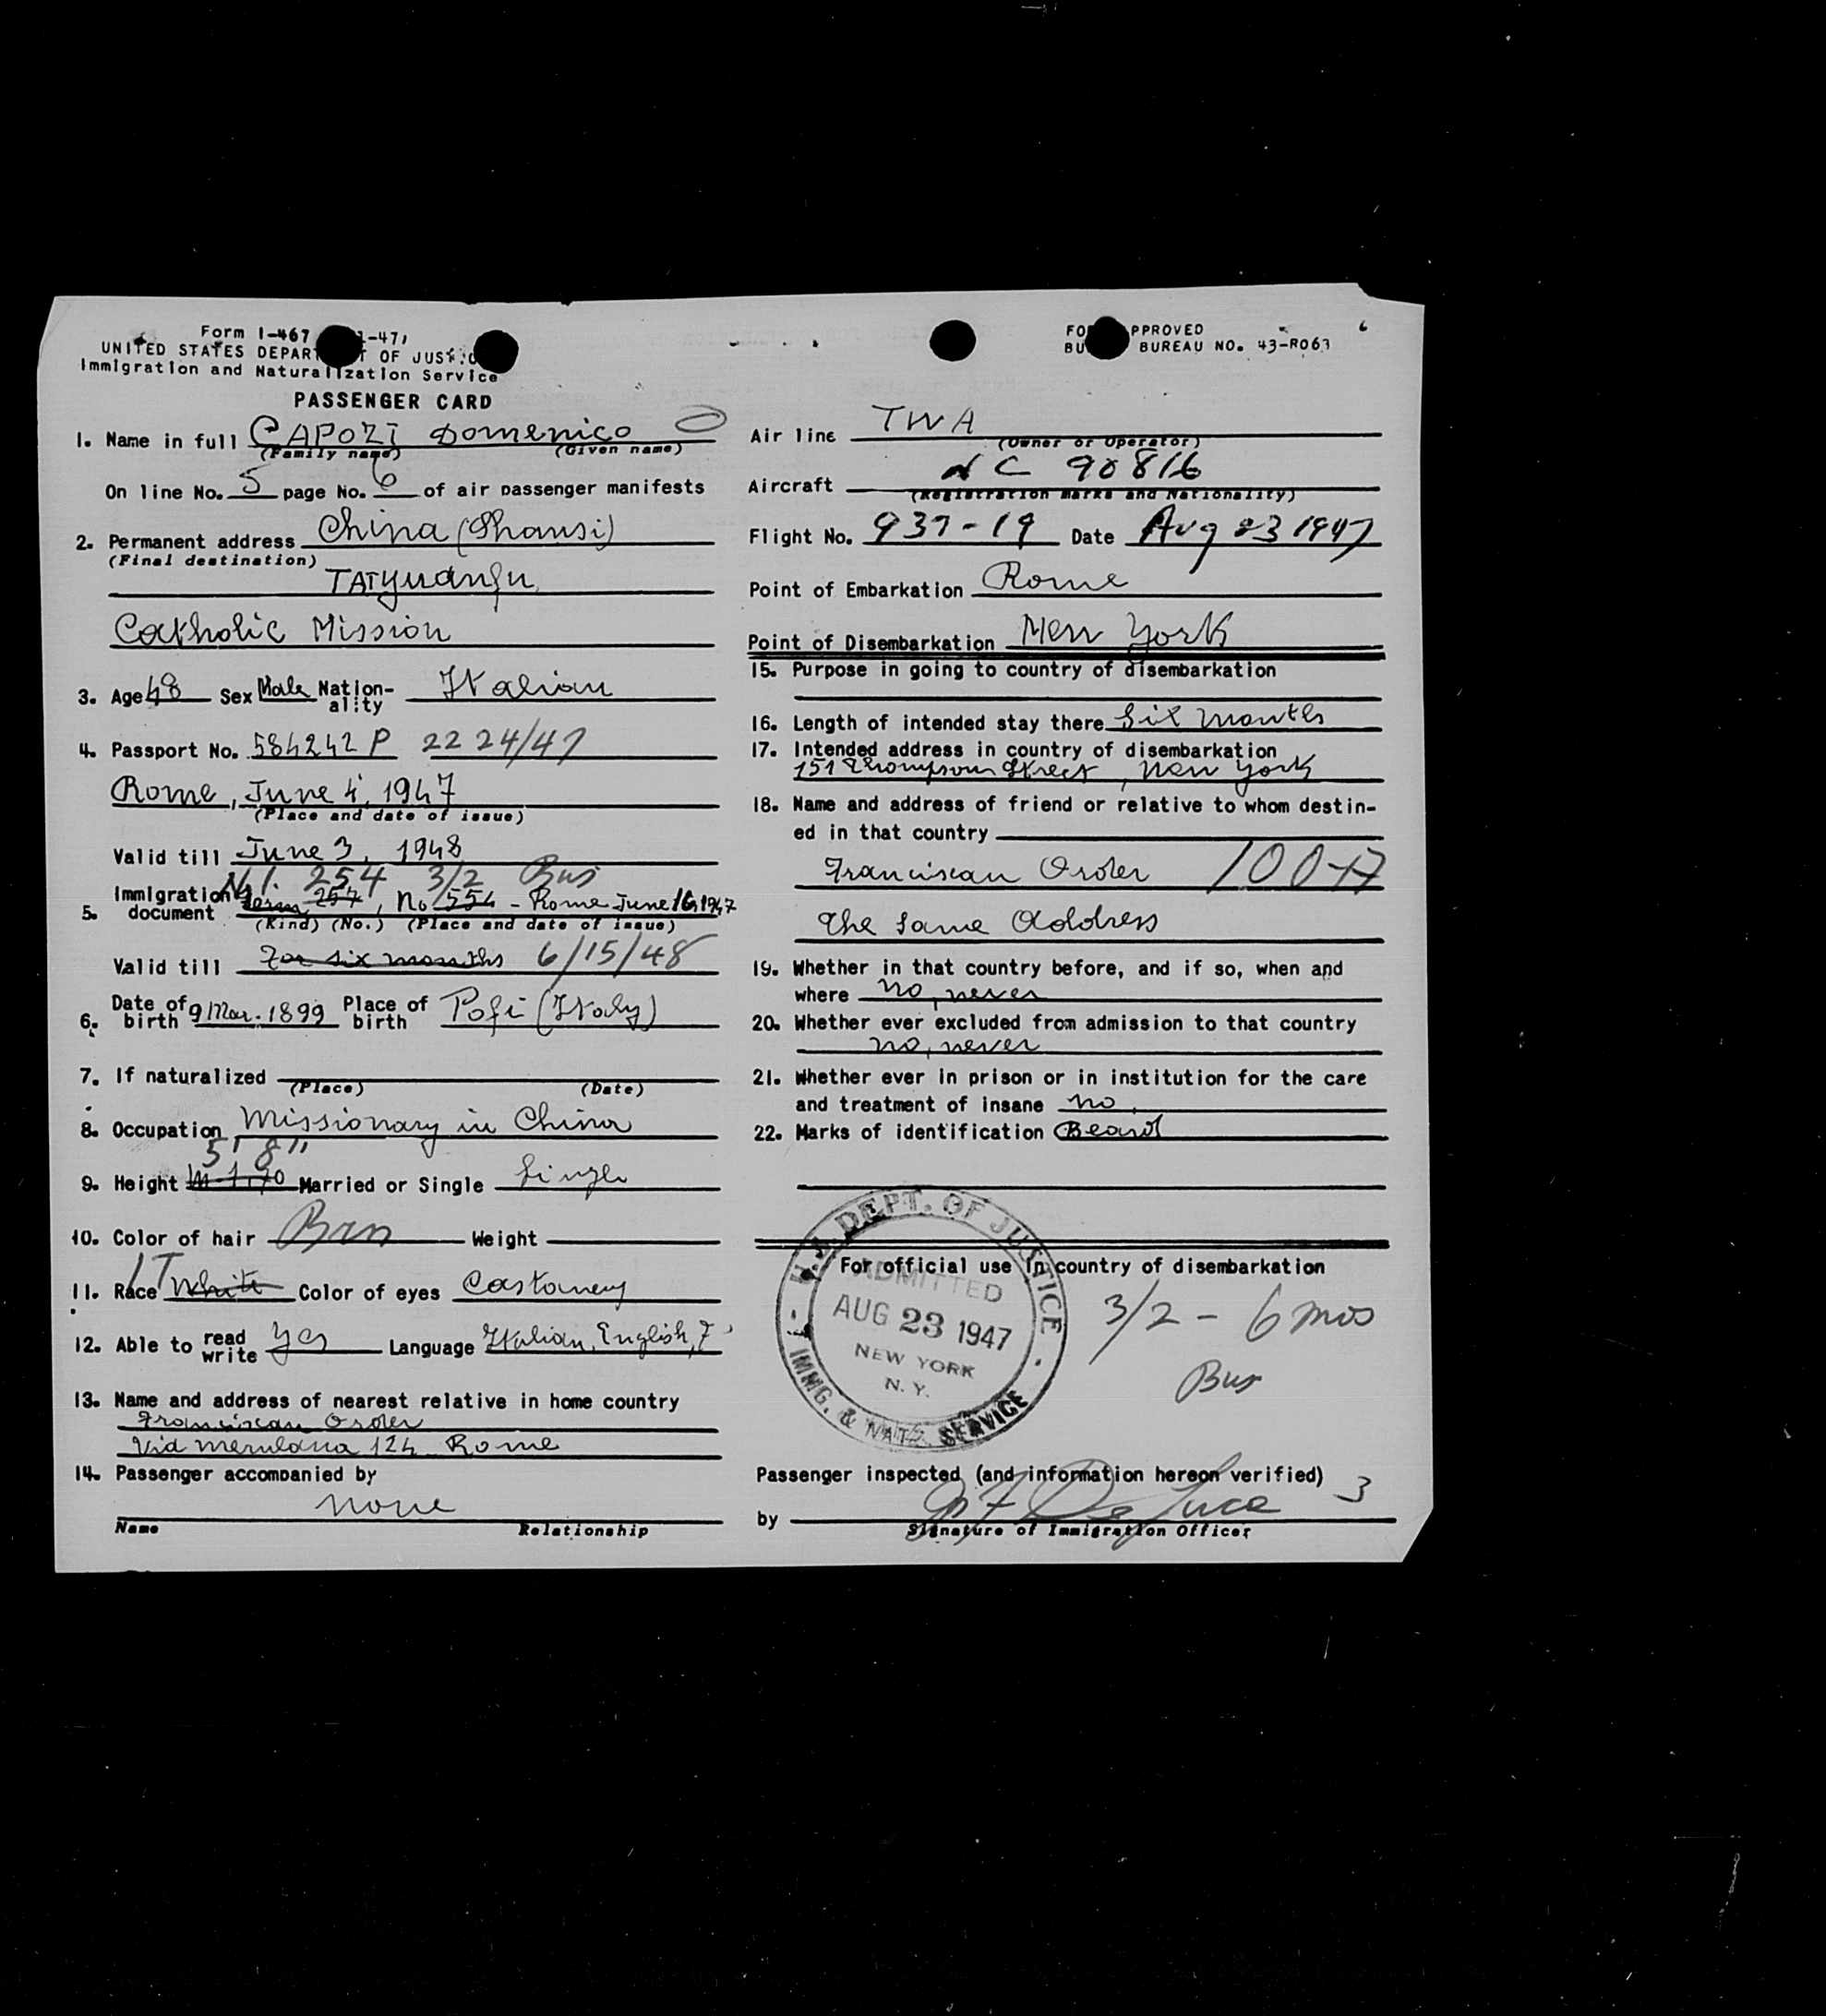 Form I-467 1-47,
UNITED STATES DEPAR T OF JUSTIC
Immigration and Naturalization Service
PASSENGER CARD
FO PPROVED
BU BUREAU NO. 43-R063
1. Name in full CAPOZI Domenico
(Family name) (Given name)
On line No. 5 page No. 6 of air passenger manifests
2. Permanent address China (Shansi)
(Final destination)
TAIyuanfu
Catholic Mission
3. Age 48 Sex Male Nation-ality Italian
4. Passport No. 584242 P 22 24/47
Rome, June 4, 1947
(Place and date of issue)
Valid till June 3, 1948
N.I. 254 3/2 Bus
5. Immigration document 257, No 554 - Rome June 16, 1947
(Kind) (No.) (Place and date of issue)
Valid till For six months 6/15/48
6. Date of birth 9 Mar. 1899 Place of birth Pofi (Italy)
7. If naturalized
(Place) (Date)
8. Occupation Missionary in China
5' 8"
9. Height M 1.70 Married or Single Single
10. Color of hair Brn Weight
IT
11. Race White Color of eyes Castaney
12. Able to read write yes Language Italian, English, F
13. Name and address of nearest relative in home country
Franciscan Order
Via Merulana 124 Rome
14. Passenger accompanied by
none
Name Relationship
Air line TWA
(Owner or Operator)
Aircraft NC 90816
(Registration marks and Nationality)
Flight No. 937-19 Date Aug 23 1947
Point of Embarkation Rome
Point of Disembarkation New York
15. Purpose in going to country of disembarkation
16. Length of intended stay there Six months
17. Intended address in country of disembarkation
151 Thompson Street, New York
18. Name and address of friend or relative to whom destin-
ed in that country
Franciscan Order
The same Address
19. Whether in that country before, and if so, when and
where no, never
20. Whether ever excluded from admission to that country
no, never
21. Whether ever in prison or in institution for the care
and treatment of insane no.
22. Marks of identification Beard
For official use in country of disembarkation
U.S. DEPT. OF JUSTICE
ADMITTED
AUG 23 1947
NEW YORK
N.Y.
IMMG. & NATZ. SERVICE
3/2 - 6 mos
Bus
Passenger inspected (and information hereon verified) 3
by De Luca
Signature of Immigration Officer